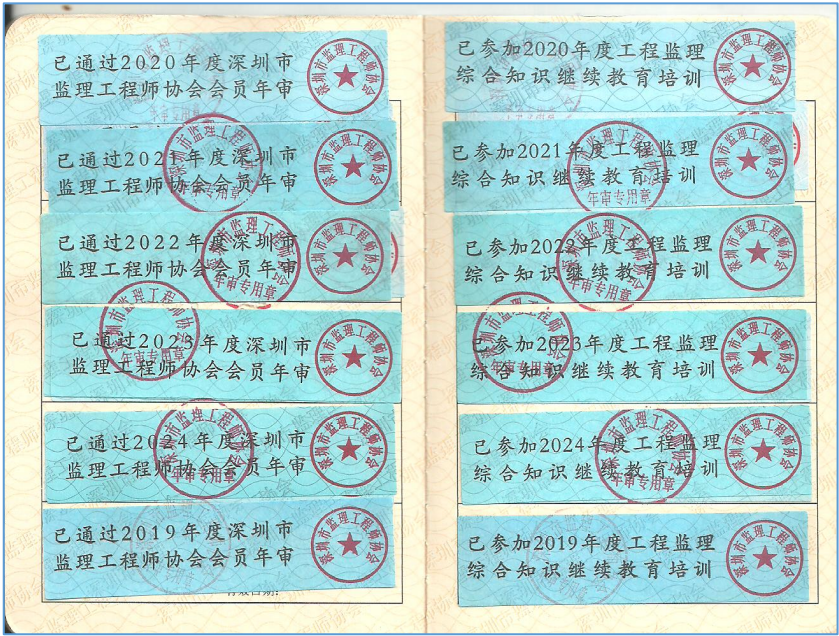 已通过2020年度深圳市
监理工程师协会会员年审
深圳市监理工程师协会
年审专用章
已通过2021年度深圳市
监理工程师协会会员年审
深圳市监理工程师协会
年审专用章
已通过2022年度深圳市
监理工程师协会会员年审
深圳市监理工程师协会
年审专用章
已通过2023年度深圳市
监理工程师协会会员年审
深圳市监理工程师协会
年审专用章
已通过2024年度深圳市
监理工程师协会会员年审
深圳市监理工程师协会
年审专用章
已通过2019年度深圳市
监理工程师协会会员年审
深圳市监理工程师协会
已参加2020年度工程监理
综合知识继续教育培训
深圳市监理工程师协会
已参加2021年度工程监理
综合知识继续教育培训
深圳市监理工程师协会
年审专用章
已参加2022年度工程监理
综合知识继续教育培训
深圳市监理工程师协会
年审专用章
已参加2023年度工程监理
综合知识继续教育培训
深圳市监理工程师协会
年审专用章
已参加2024年度工程监理
综合知识继续教育培训
深圳市监理工程师协会
年审专用章
已参加2019年度工程监理
综合知识继续教育培训
深圳市监理工程师协会